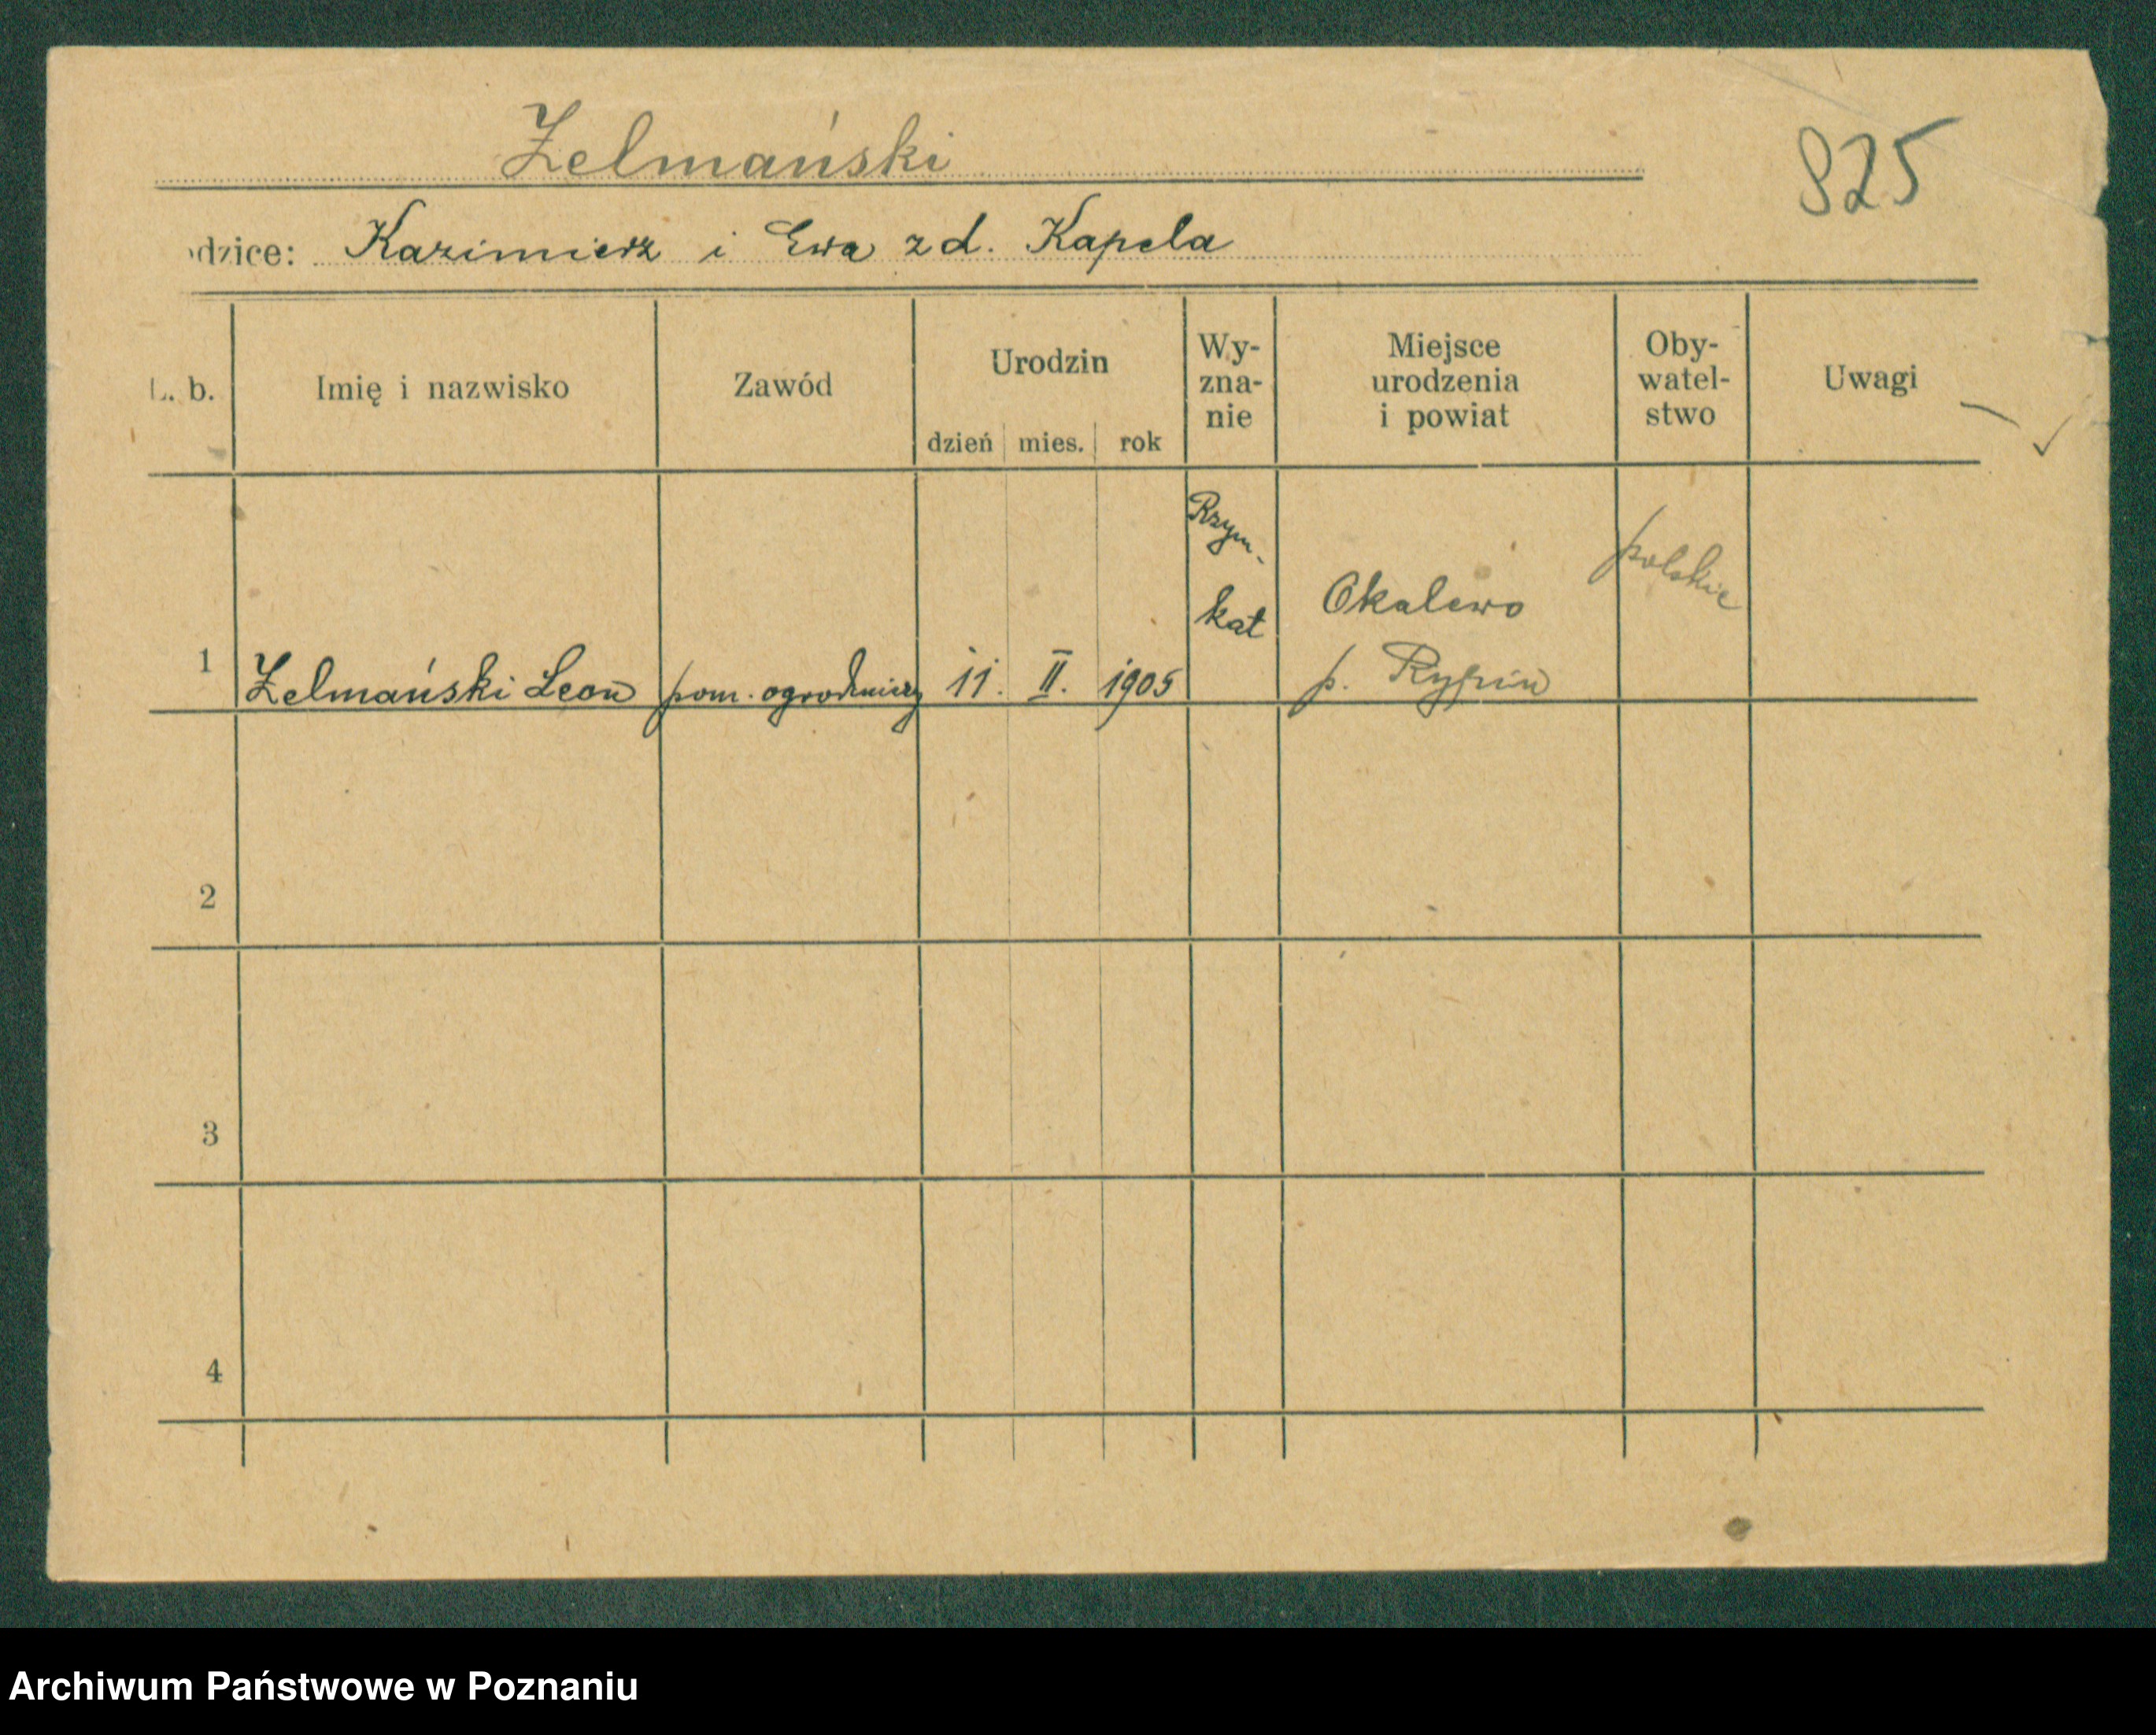 Zelmański
825
odzice: Kazimierz i Ewa z d. Kapela
L. b. Imię i nazwisko Zawód Urodzin dzień mies. rok Wy-zna-nie Miejsce urodzenia i powiat Oby-watel-stwo Uwagi
Rzym.
polskie
kat
Okalewo
1 Zelmański Leon pom. ogrodniczy 11. II. 1905 p. Rypin
2
3
4
Archiwum Państwowe w Poznaniu